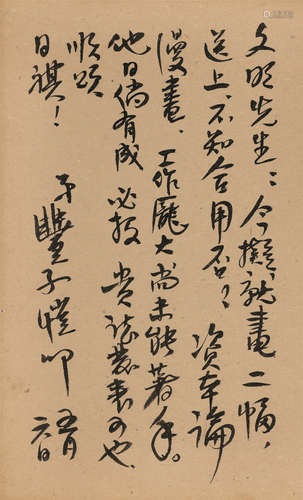 文明先生：今擬就畫二幅，
送上，不知合用否？資本論
漫畫、工作龐大尚未能著手。
他日倘有成必投貴誌發表可也
順頌
日祺！
弟豐子愷叩
五月
六日